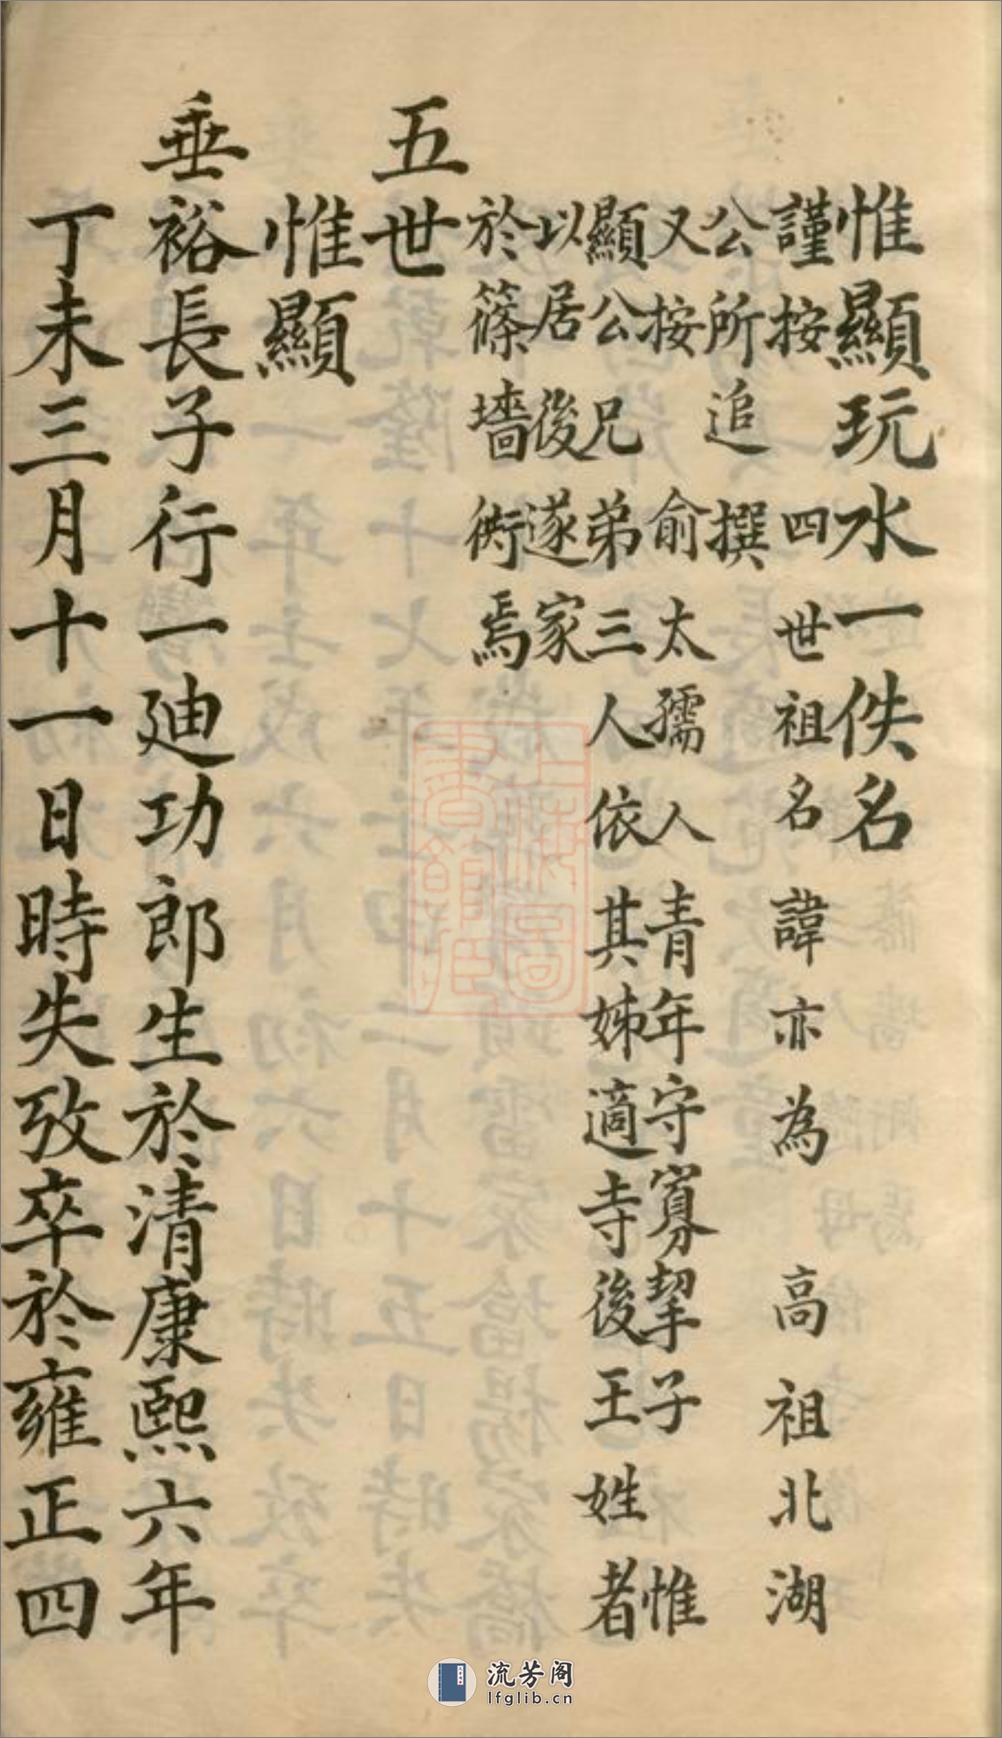 惟顯玩水一佚名
謹按四世祖名諱亦為 高祖北湖
公所追撰
又按俞太孺人青年守寡挈子 惟
顯公兄弟三人依其姊適寺後王姓者
以居後遂家
於篠墻衖焉
五世
惟顯
垂裕長子行一廸功郎生於清康熙六年
丁未三月十一日時失攷卒於雍正四
流芳阁
lfglib.cn